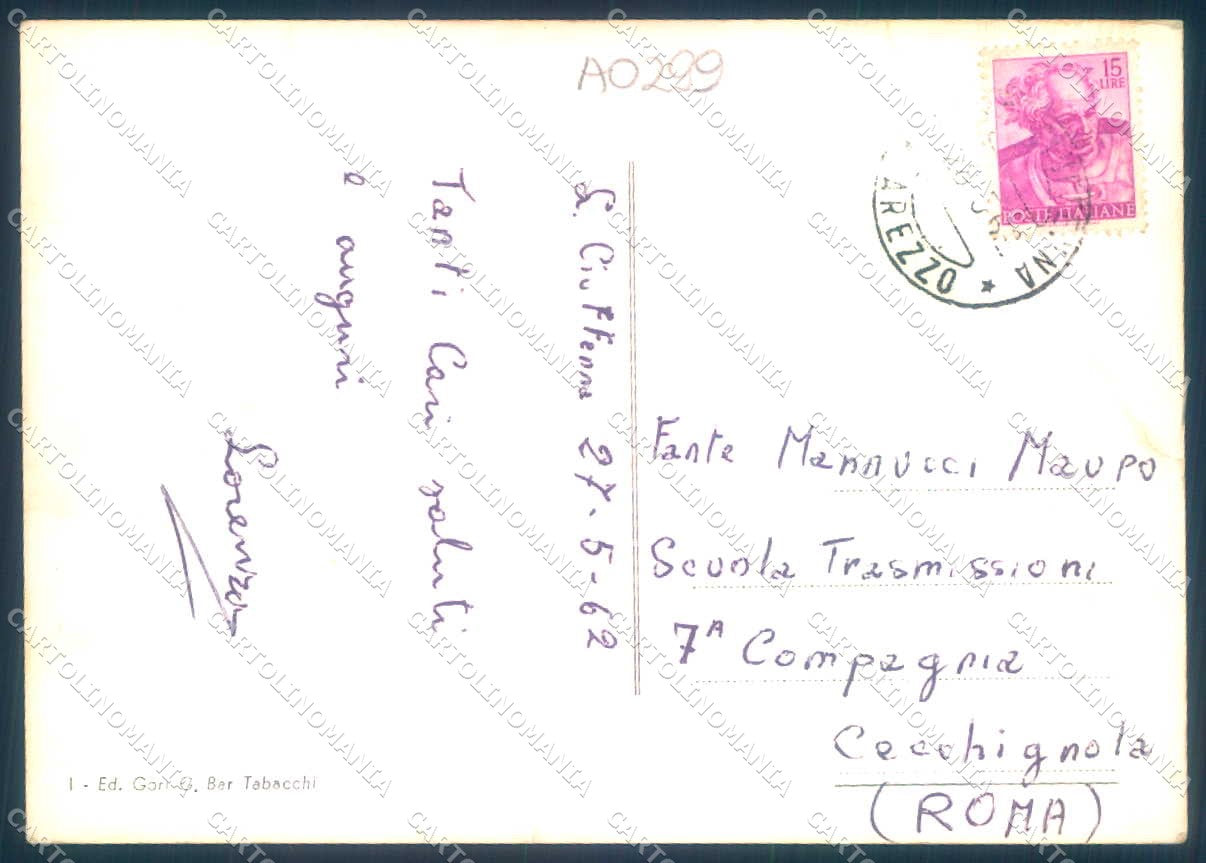 AO299
15
LIRE
POSTE ITALIANE
AREZZO
S. Giustino 27-5-62
Tanti Cari saluti
e auguri
Lorenzo
Fante Mannucci Mauro
Scuola Trasmissioni
7ᴬ Compagnia
Cecchignola
(ROMA)
I - Ed. Gori G. Bar Tabacchi
CARTOLINOMANIA